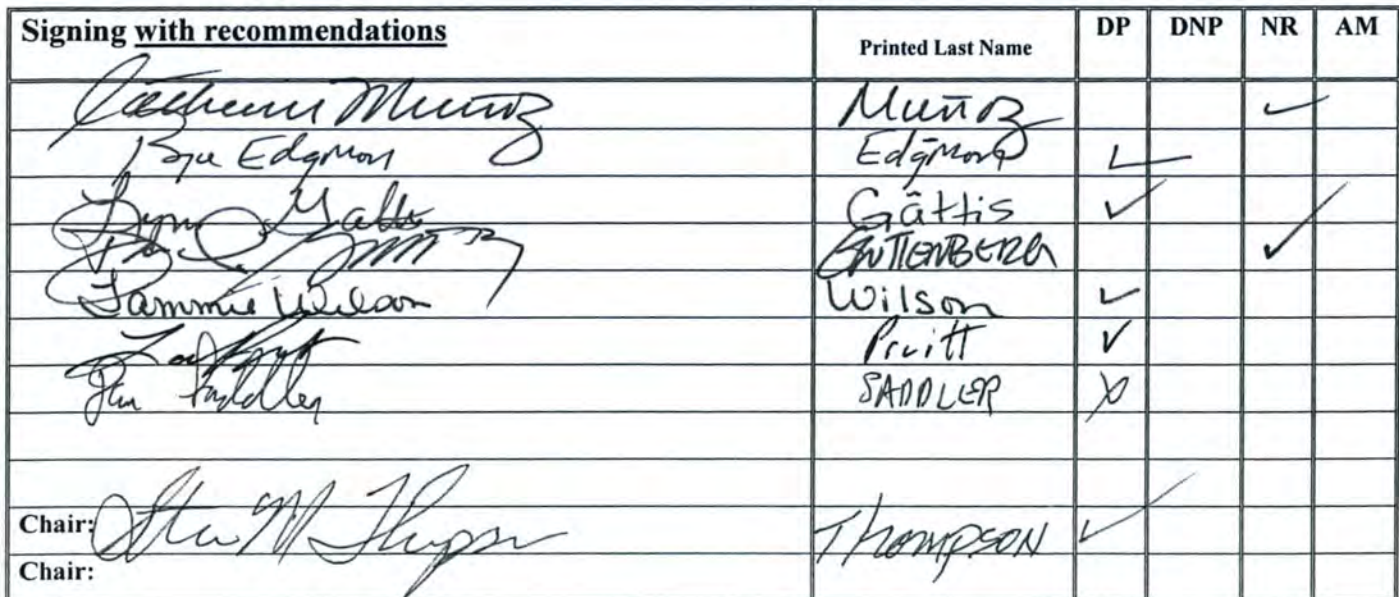 Signing with recommendations Printed Last Name DP DNP NR AM
Catherine Muñoz Muñoz ✓
Bryce Edgmon Edgmon ✓
Lynn Gattis Gattis ✓
GUTTENBERG ✓
Tammie Wilson Wilson ✓
Pruitt ✓
Dan Saddler SADDLER X
Chair: Steve M Thompson THOMPSON ✓
Chair: